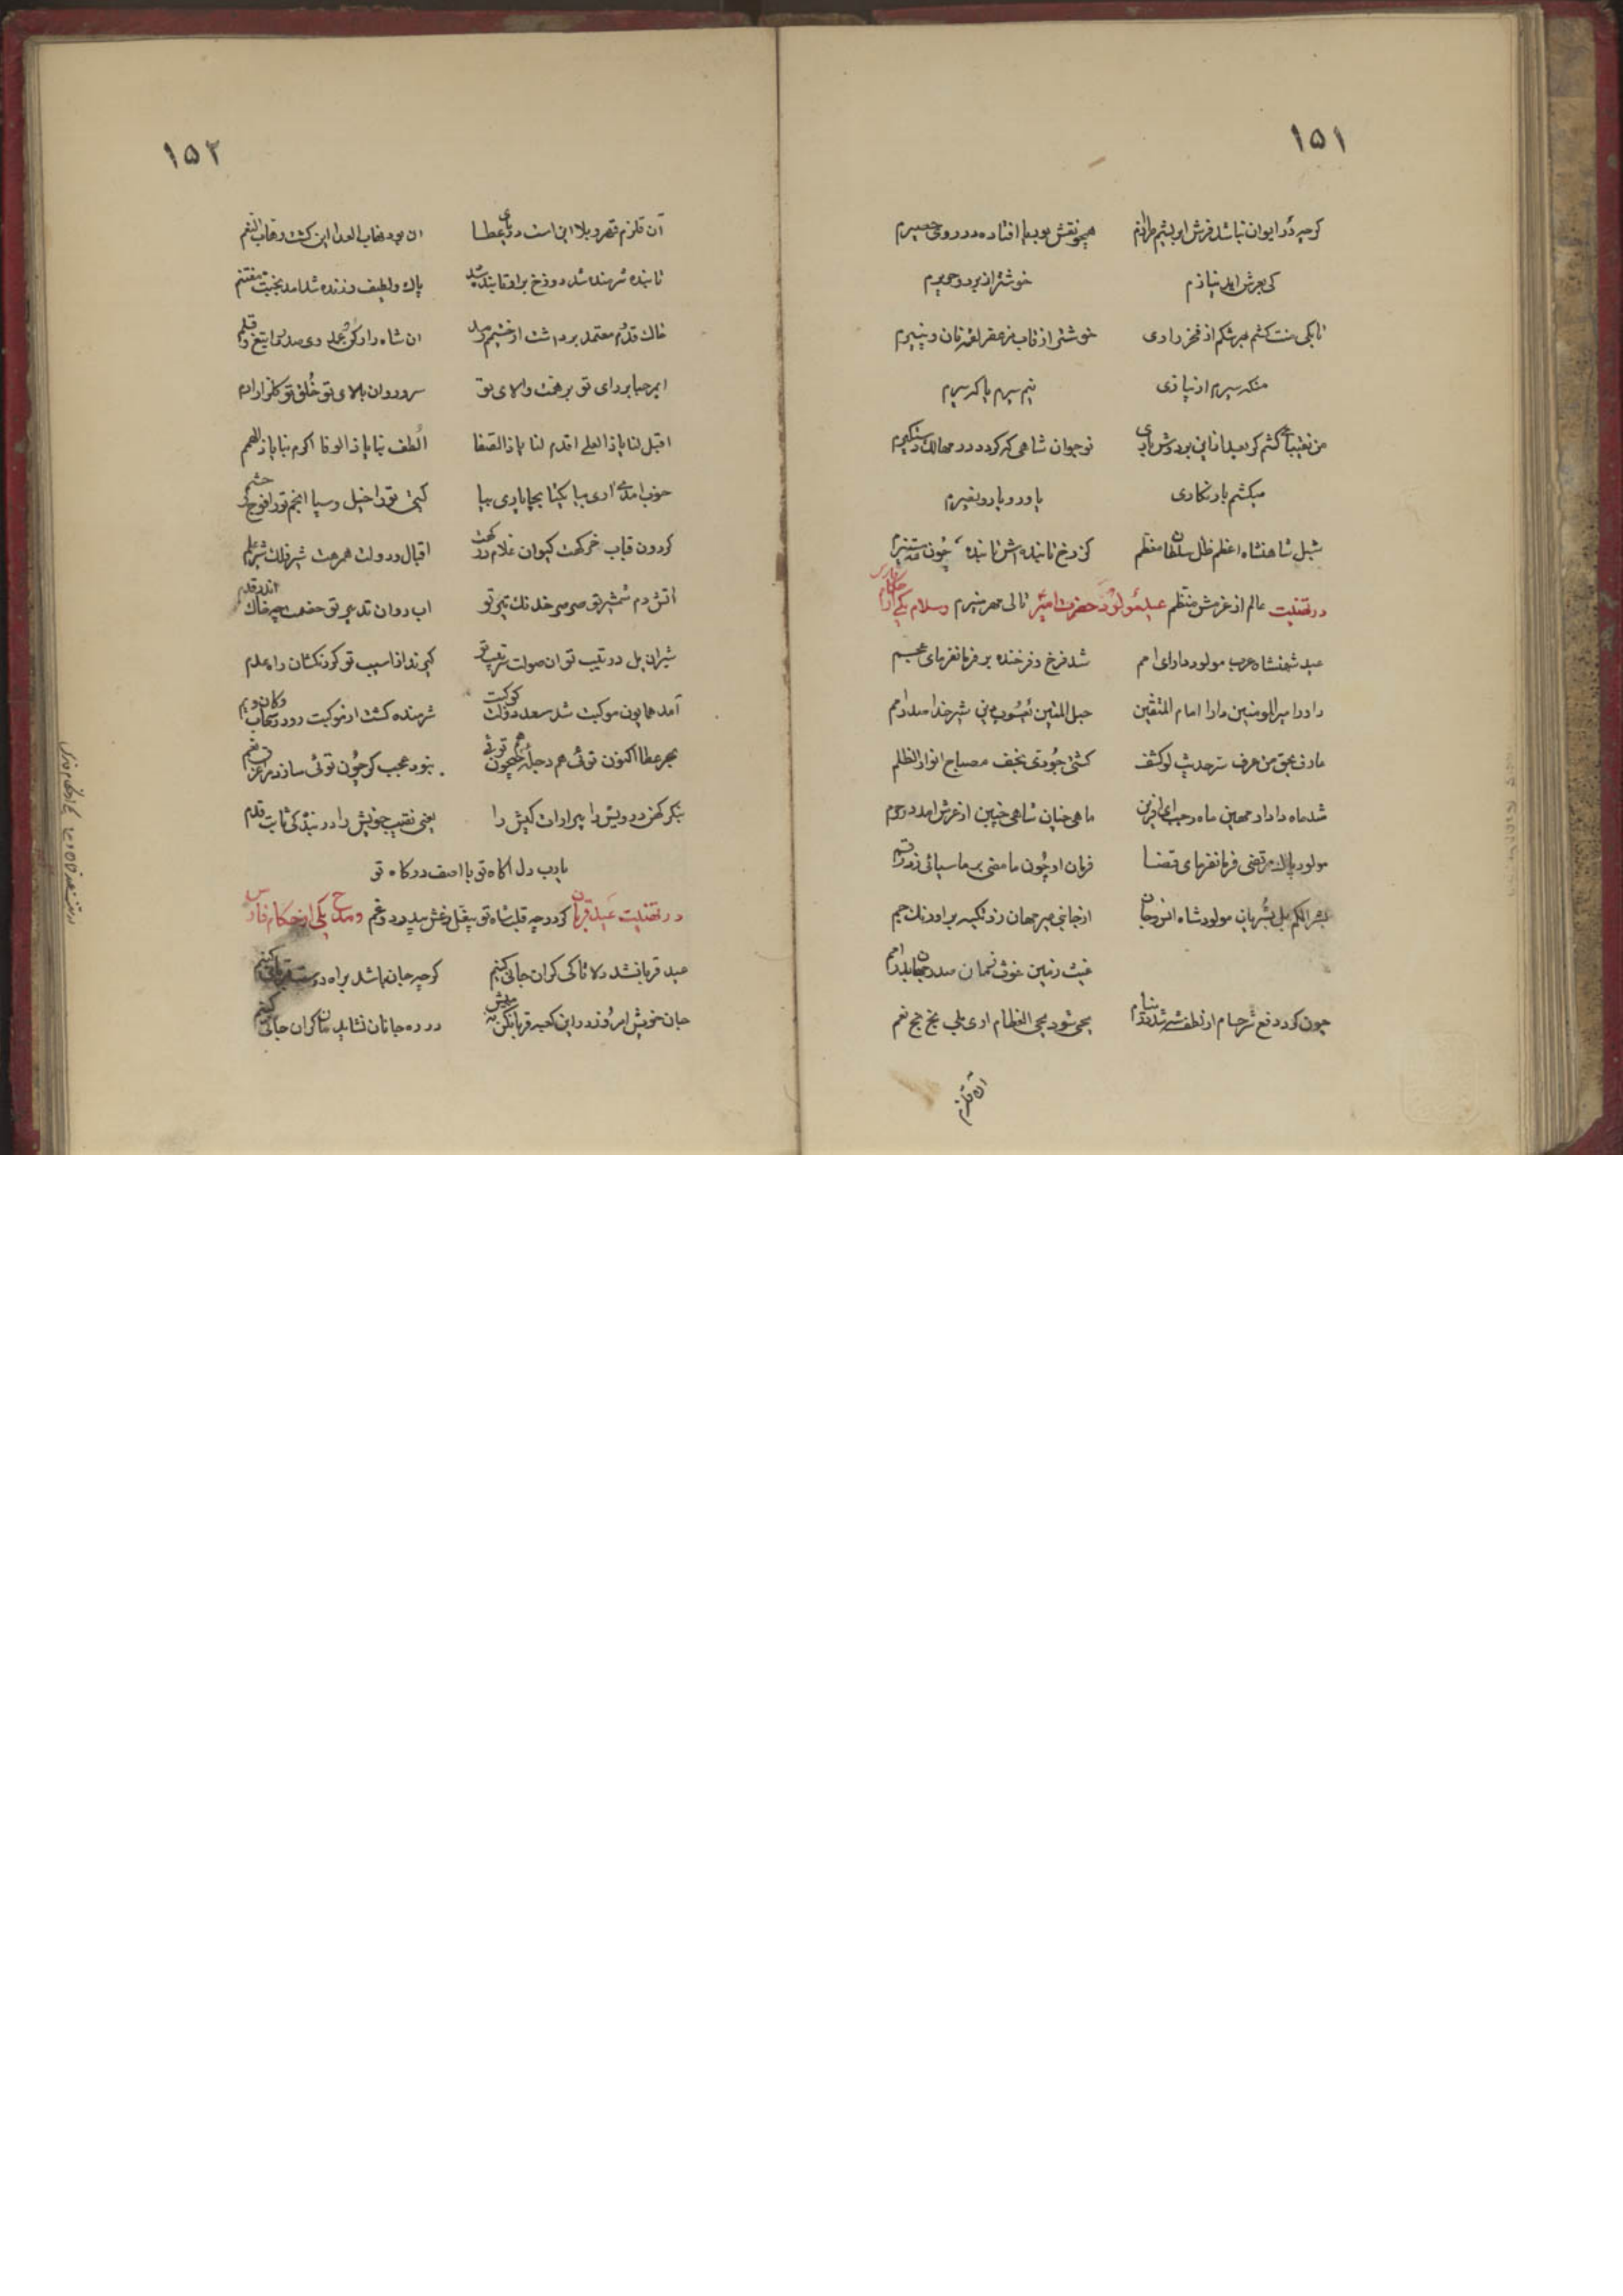 ۱۵۱
کرچه در ایوان نباشد فرش ابریشم طرازم همچو نقش بوریا افتاده در روی حصیرم
کی بعرش اید نیازم خوشتر از برد و حریرم
تا بکی منت کشم هر شکم از فخر رادی خوشتر از قاب مزعفر لقمه نان و پنیرم
منکه سیرم از پیازی نیم سیرم یا که سیرم
من نقیبا کشم کر بعد ازاین بر دوش باری نوجوان شاهی که کردد در ممالک دستکیرم
میکشم بار نکاری یاور و یار و نصیرم
شبل شاهنشاه اعظم ظل سلطان معظم کز رخ تابنده اش تابنده چون مه مستنیرم
در تهنیت عالم از عزمش منظم عید مولود حضرت امیر تالی مهر منیرم وسلام یکی از حکام فارس
عید شهنشاه عرب مولود دارای امم شد فرخ و فرخنده بر فرمانفرمای عجم
داور امیرالمومنین دارا امام المتقین حبل المتین یعسوب دین شیر خدا صدر امم
عارف بحق من عرف سر حدیث لو کشف کشتی جودی نجف مصباح انوار الظلم
شد ماه دادار مهین ماه رجب ای افرین ماهی چنان شاهی چنین از عرش امد در حرم
مولود پاک مرتضی فرمانفرمای قضا فرمان او چون ما مضی بر ماسیاتی زد رقم
بشرا لکم بل بشر یان مولود شاه انس و جان از جانبی میر جهان زد تکیه بر اورنک جم
غیث زمین غوث زمان صدر جهان بدر امم
چون کرد دفع شر حسام از لطف شه شد دوام یحیی شود یحیی العظام اری بلی بخ بخ نعم
ان قلزم
۱۵۲
آن قلزم قهر و بلا این است دریای عطا ان بود وهاب الورا این کشت وهاب النعم
تابنده شرمنده شد دوزخ بر او تابنده شد پاک و لطیف و زنده شد امد بجنت مغتنم
خاک قدم معتمد برداشت از خشم
ابر حیا بر رای تو بر همت والای تو سرو روان بالای تو خلق تو کلزار ارم
اقبل لنا یا ذا العلی اقدم لنا یا ذا الصفا الطف بنا یا ذا الوفا اکرم بنا یا ذا الهمم
خوب امدی اری بیا یکتا بجا باری بیا کیتی تو را خیل و سپا انجم تو را فوج و حشم
کردون قباب خرکهت کیوان غلام درکهت اقبال و دولت همرهت شیر فلک شیر علم
اتش دم شمشیر تو صرصر خدنک تیر تو اب روان تدبیر تو
شیران یل در تیب تو ان صولت ترتیب تو کیرند از اسیب تو کردنکشان راه عدم
آمد همایون موکبت شد سعد دولت کوکبت شرمنده کشت از موکبت رود و سحاب و کان و یم
بحر عطا اکنون توئی هم دجله هم جیحون توئی نبود عجب کر چون توئی سازد مرا غرق نعم
بنکر کهن درویش را پیر ارادت کیش را یعنی نقیب خویش را در بندکی ثابت قدم
یارب دل اکاه تو با اصف درکاه تو
در تهنیت عید قربان کردد چه قلب شاه تو بیغل و غش بیدرد و غم ومدح یکی از حکام فارس
عید قربانشد دلا تا کی کران جانی کنیم کرچه جان باشد براه دوست قربانی کنیم
جان خویش امروز در این کعبه قربانکن به پیش در ره جانان نشاید کران جانی کنیم